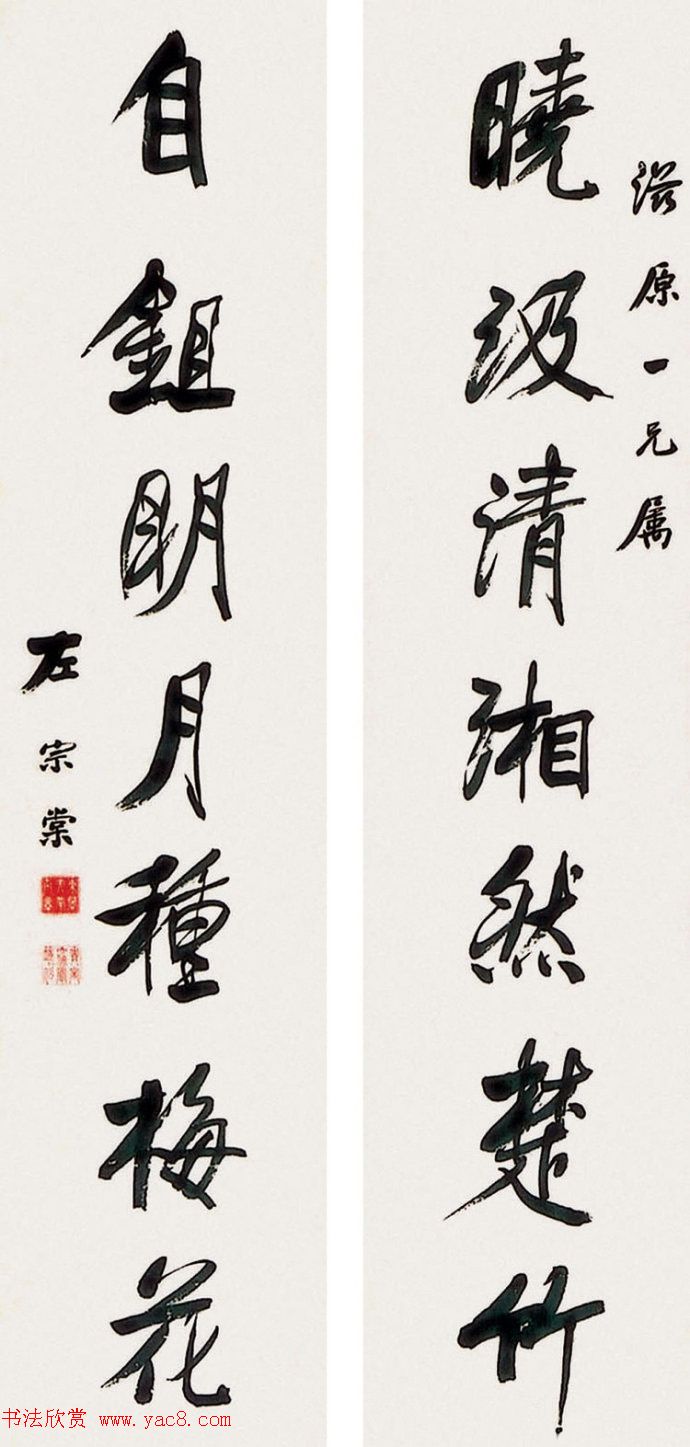 滋原一兄属
曉汲清湘然楚竹
自鉏明月種梅花
左宗棠
书法欣赏 www.yac8.com